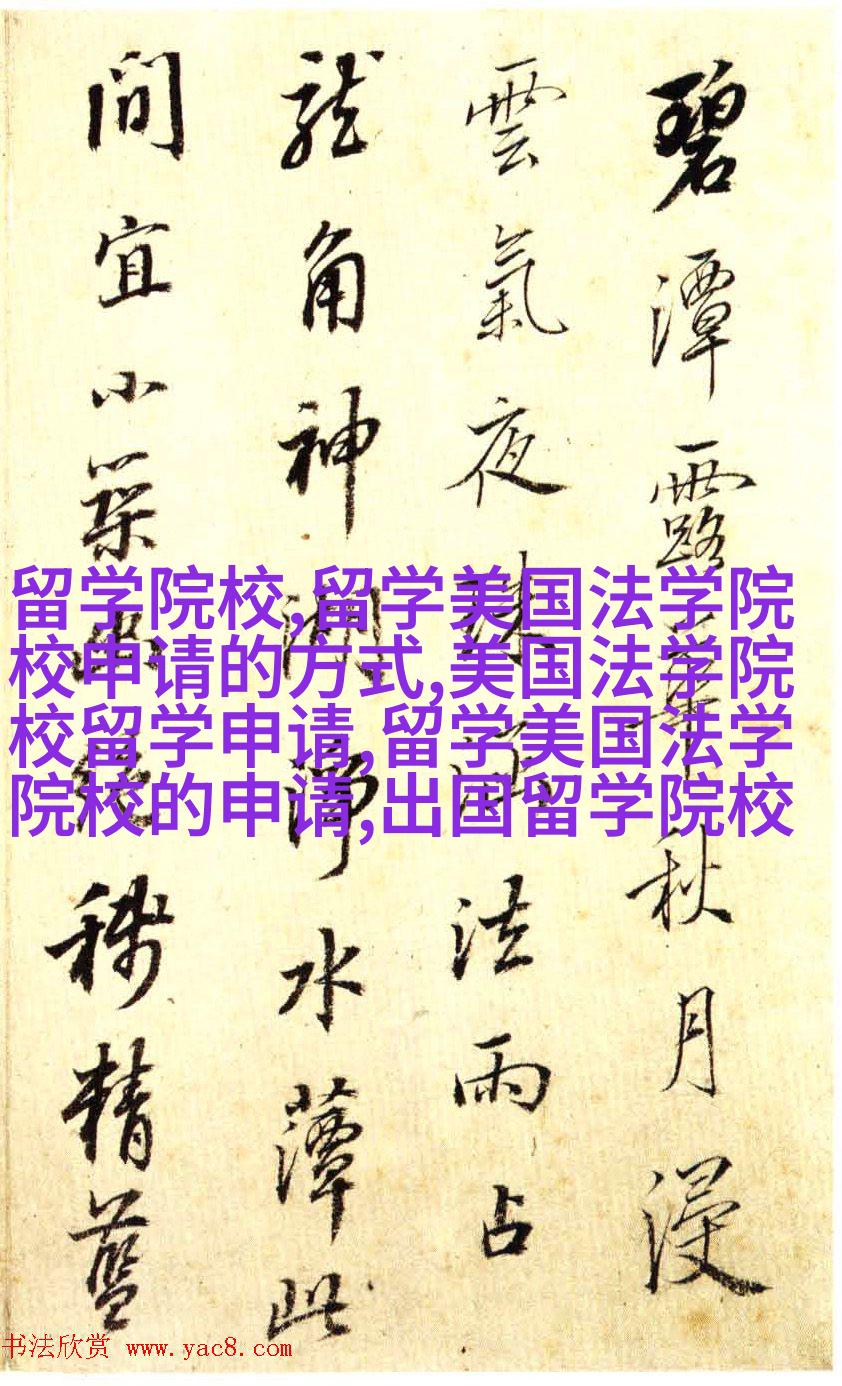 碧潭露華秋月浸
雲氣夜珠涵法雨占
龍角神淨水此
間宜小築精藍
留学院校,留学美国法学院
校申请的方式,美国法学院
校留学申请,留学美国法学
院校的申请,出国留学院校
书法欣赏 www.yac8.com